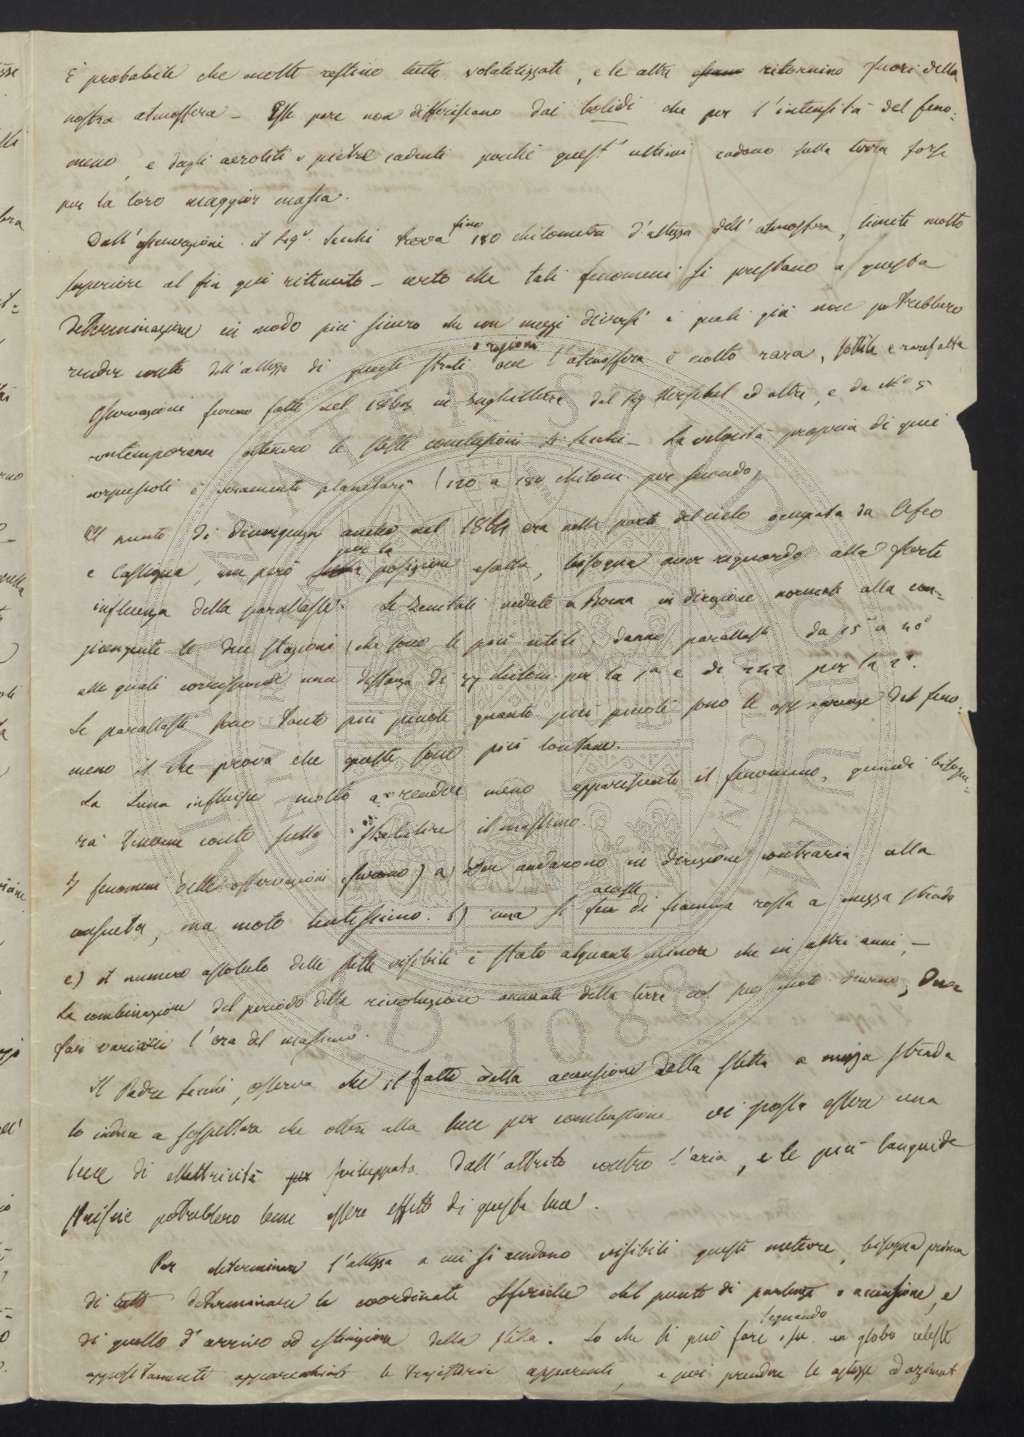 È probabile che molte restino tutte volatilizzate, e le altre ritornino fuori della
nostra atmosfera – Esse pare non differiscano dai bolidi che per l'intensità del feno=
meno, e dagli aeroliti o pietre cadenti perchè quest' ultimi cadono sulla terra forse
per la loro maggior massa.
Dall'osservazioni il Sigr. Secchi trova fino 180 chilometri d'altezza dell'atmosfera, limite molto
superiore al fin qui ritenuto – certo che tali fenomeni si prestano a questa
determinazione in modo più sicuro che con mezzi diversi i quali già non potrebbero
render conto dell'altezza di questi strati o regioni ove l'atmosfera è molto rara, sottile e rarefatta
Osservazioni furono fatte nel 1864 in Inghilterra dal Sig Herschel ed altri, e da
contemporanee ottenero le stesse conclusioni di Secchi – La velocità propria di quei
corpuscoli è veramente planetaria (120 a 180 chilom. per secondo)
Il punto di divergenza anche nel 1864 era nella parte del cielo occupata da Cefeo
e Cassiopea, ma però per la posizione esatta, bisogna aver riguardo alla forte
influenza della parallasse. Le Zenitali vedute a Roma in direzione normale alla con=
giungente le due stazioni (che sono le più utili) danno parallassi da 15° a 40°
alle quali corrisponde una distanza di 77 chilom per la 1a e di 242 per la 2a.
Le parallassi sono tanto più piccole quanto più piccoli sono le apparenze del feno
meno il che prova che queste sono più lontane.
La Luna influisce molto a rendere meno appariscente il fenomeno, quindi bisogne=
rà tenerne conto nello stabilire il massimo.
I fenomeni delle osservazioni furono) a) Due andarono in direzione contraria alla
consueta, ma moto lentissimo. b) una si accese di fiamma rossa a mezza strada
c) il numero assoluto delle stelle visibili è stato alquanto minore che in altri anni, –
La combinazione del periodo della rivoluzione annuale della terra col suo moto diurno, deve
far variare l'ora del massimo.
Il Padre Secchi, osserva che il fatto della accensione della stella a mezza strada
lo induce a sospettare che oltre alla luce per combustione vi possa essere una
luce di elettricità sviluppata dall'attrito contro l'aria, e le più languide
striscie potrebbero bene essere effetto di questa luce.
Per determinare l'altezza a cui si rendono visibili queste meteore, bisogna prima
di tutto determinare le coordinate sferiche del punto di partenza o accensione, e
di quello d'arrivo od estinzione della stella. Lo che si può fare segnando su un globo celeste
appositamente apparecchiato la trajettoria apparente, e poi prendere le altezze ed azimut